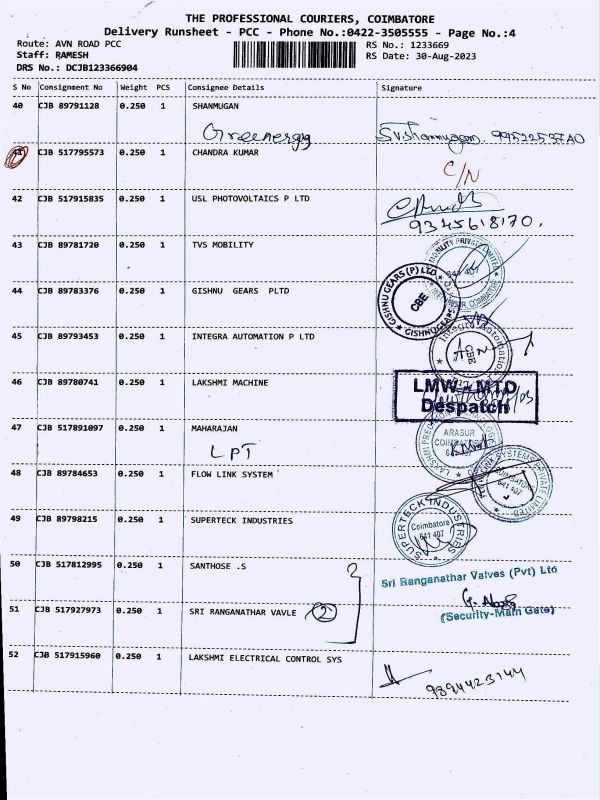 THE PROFESSIONAL COURIERS, COIMBATORE
Delivery Runsheet - PCC - Phone No.:0422-3505555 - Page No.:4
Route: AVN ROAD PCC
Staff: RAMESH
DRS No.: DCJB123366904
RS No.: 1233669
RS Date: 30-Aug-2023
S No Consignment No Weight PCS Consignee Details Signature
40 CJB 89791128 0.250 1 SHANMUGAN
Greenergy
99522537A0
41 CJB 517795573 0.250 1 CHANDRA KUMAR
C/N
42 CJB 517915835 0.250 1 USL PHOTOVOLTAICS P LTD
9345618170.
43 CJB 89781720 0.250 1 TVS MOBILITY
MOBILITY PRIVATE LIMITED
44 CJB 89783376 0.250 1 GISHNU GEARS PLTD
GISHNU GEARS (P) LTD
CBE
45 CJB 89793453 0.250 1 INTEGRA AUTOMATION P LTD
Integra Automation
CBE
46 CJB 89780741 0.250 1 LAKSHMI MACHINE
LMW - MTD
Despatch
47 CJB 517891097 0.250 1 MAHARAJAN
LPT
ARASUR
COIMBATORE
641 407
48 CJB 89784653 0.250 1 FLOW LINK SYSTEM
COIMBATORE
641 407
49 CJB 89798215 0.250 1 SUPERTECK INDUSTRIES
SUPERTECK INDUSTRIES
Coimbatore
641 407
50 CJB 517812995 0.250 1 SANTHOSE .S
Sri Ranganathar Valves (Pvt) Ltd
51 CJB 517927973 0.250 1 SRI RANGANATHAR VAVLE
2
(Security-Main Gate)
52 CJB 517915960 0.250 1 LAKSHMI ELECTRICAL CONTROL SYS
9894423144